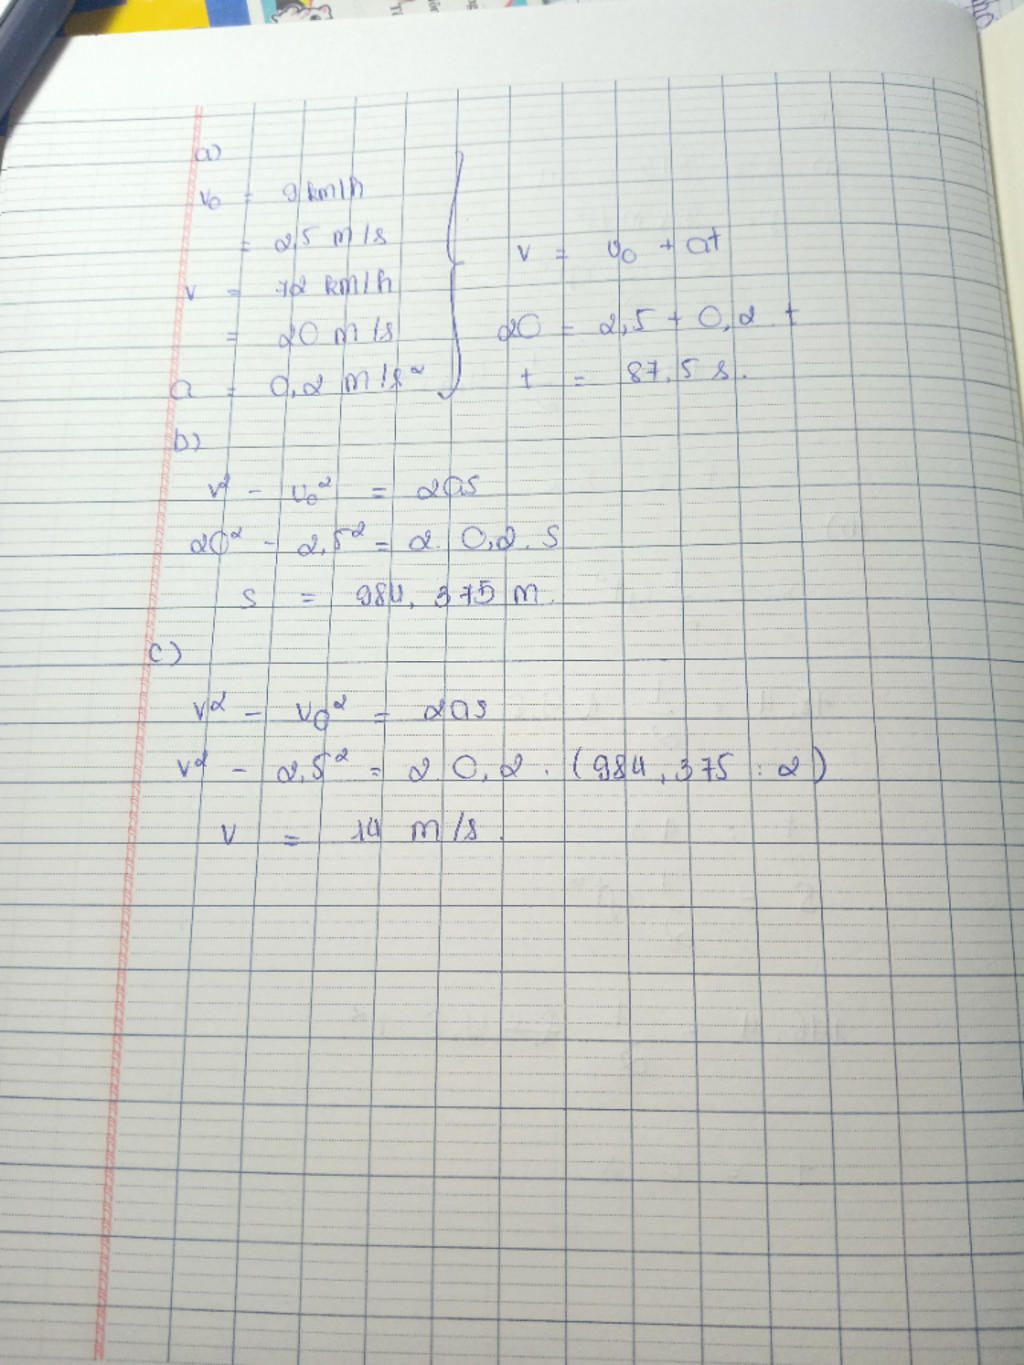 a)
v₀ = 9 km/h
= 2,5 m/s
v = 72 km/h
= 20 m/s
a = 0,2 m/s²
v = v₀ + at
20 = 2,5 + 0,2 t
t = 87,5 s.
b)
v² - v₀² = 2as
20² - 2,5² = 2. 0,2. s
s = 984, 375 m.
c)
v² - v₀² = 2as
v² - 2,5² = 2 0,2 . (984,375 : 2)
v = 14 m/s.